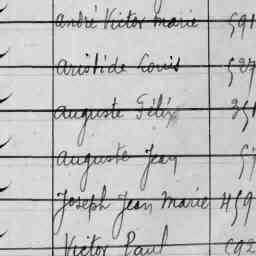 andré Victor marie 591
aristide Louis 527
auguste Félix 351
auguste Jean 57
Joseph Jean Marie 459
Victor Paul 592